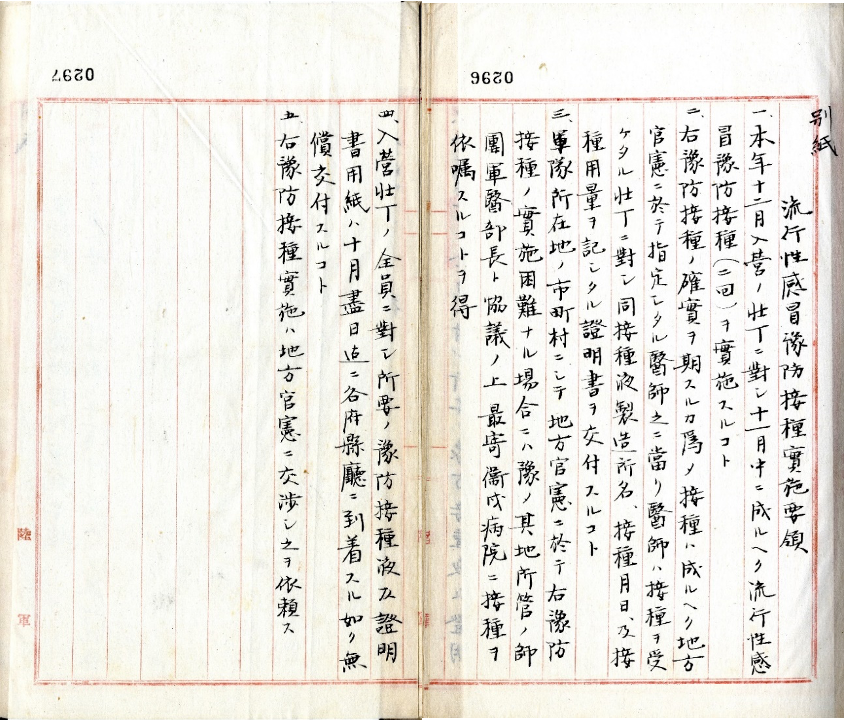 0296
別紙
流行性感冒豫防接種實施要領
一、本年十二月入營ノ壮丁ニ對シ十一月中ニ成ルヘク流行性感
冒豫防接種(二回)ヲ實施スルコト
二、右豫防接種ノ確實ヲ期スル爲メ接種ハ成ルヘク地方
官憲ニ於テ指定シタル醫師之ニ當リ醫師ハ接種ヲ受
ケタル壮丁ニ對シ同接種液製造所名、接種月日及接
種用量ヲ記シタル證明書ヲ交付スルコト
三、軍隊所在地ノ市町村ニシテ地方官憲ニ於テ右豫防
接種ノ實施困難ナル場合ニハ豫メ其地所管ノ師
團軍醫部長ト協議ノ上最寄衞戍病院ニ接種ヲ
依嘱スルコトヲ得
0297
四、入營壮丁ノ全員ニ對シ所要ノ豫防接種液及證明
書用紙ハ十月盡日迠ニ各府縣廳ニ到着スル如ク無
償交付スルコト
五、右豫防接種實施ハ地方官憲ニ交渉シ之ヲ依頼ス
陸軍